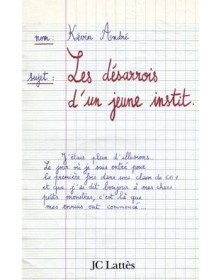 nom : Kévin André
sujet : Les désarrois
d'un jeune instit.
J'étais plein d'illusions.
Le jour où je suis entré pour
la première fois dans une classe de
et que j'ai dit bonjour à mes chers
petits monstres, c'est là que
mes ennuis ont commencé...
JC Lattès